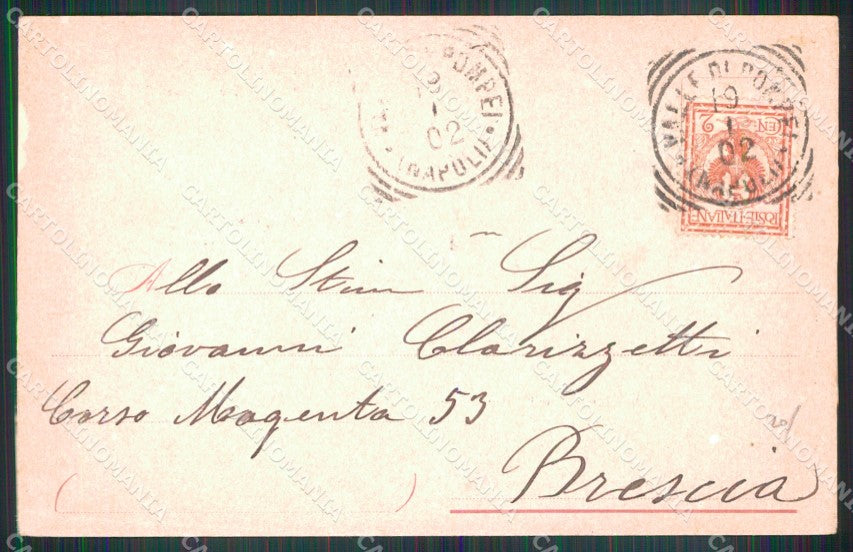 POMPEI
1
02
(NAPOLI)
VALLE DI POMPEI
19
1
02
(NAPOLI)
CEN 2
POSTE·ITALIANE
Allo Stim Sig
Giovanni Clarizzetti
Corso Magenta 53
Brescia
CARTOLINOMANIA